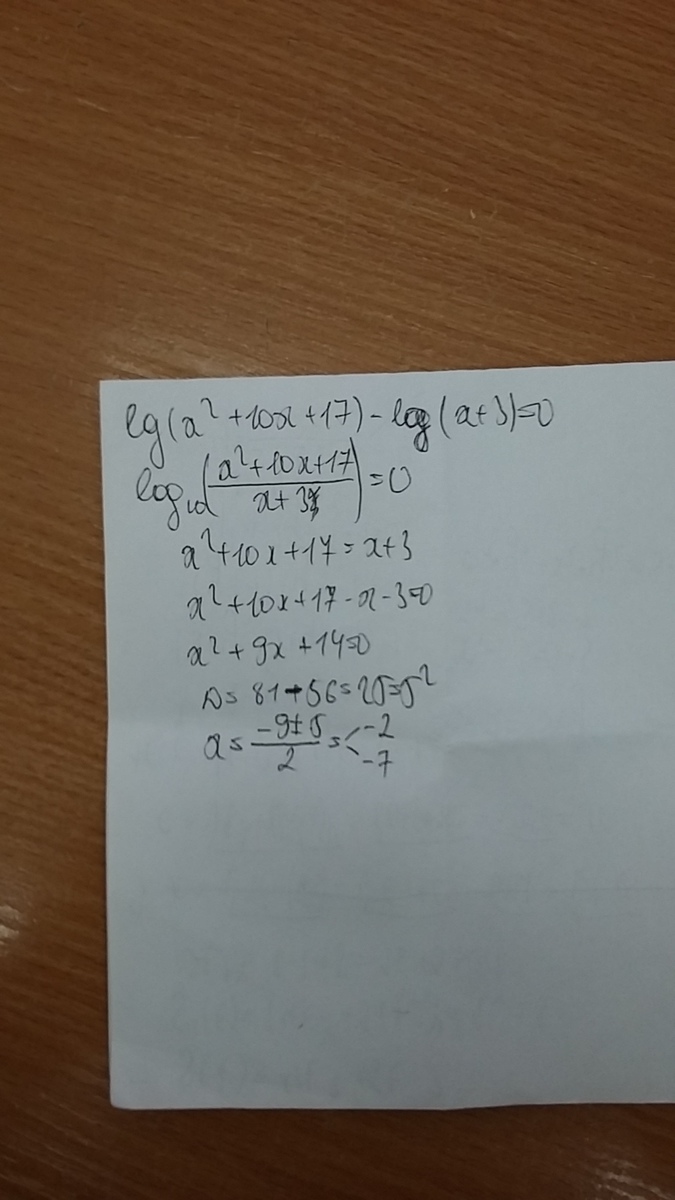 lg(x²+10x+17)-log(x+3)=0
log₁₀(x²+10x+17/x+3)=0
x²+10x+17=x+3
x²+10x+17-x-3=0
x²+9x+14=0
D=81-56=25=5²
x=-9±5/2=<-2 -7